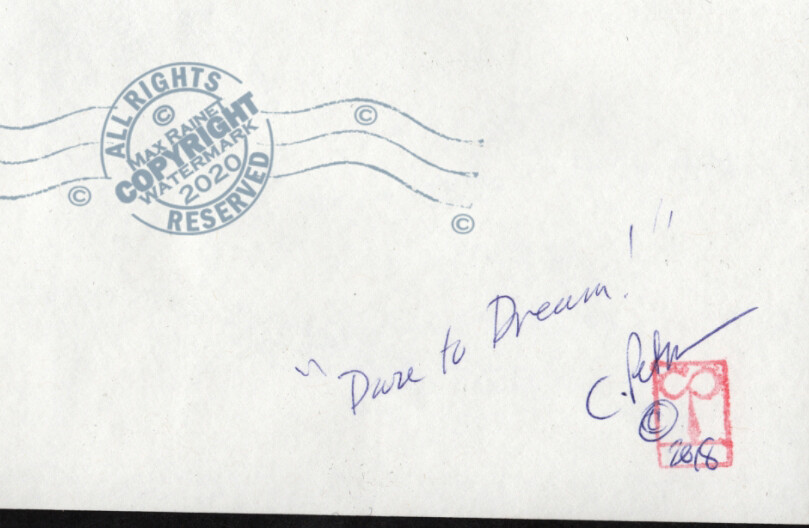 ALL RIGHTS
©
MAX RAINET
COPYRIGHT
WATERMARK
2020
RESERVED
©
©
©
"Dare to Dream!"
©
2018